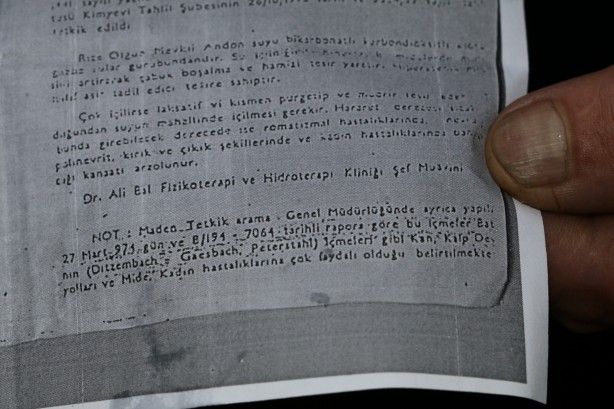 tüsü Kimyevi Tahlil Şubesinin 26/10/
tetkik edildi
Rize Olgun Mevkii Andon suyu bikarbonatlı karbondioksitli
gazoz sular gurubundandır. Su için
artırarak çabuk boşalma ve hamızi tesir yaratır.
hafif asit tadil edici tesire sahiptir.
Çok içilirse laksatif vi kısmen purgetip ve müdrir tesir
duğundan suyun mahallinde içilmesi gerekir. Hararet derecesi
bunda girebilecek derecede ise romatizmal hastalıklarında,
polinevrit, kırık ve çıkık şekillerinde ve kadın hastalıklarında
cağı kanaatı arzolunur.
Dr. Ali Bal Fizikoterapi ve Hidroterapi Kliniği Şef Muavini
NOT : Maden Tetkik arama Genel Müdürlüğünde ayrıca yapıl
27 Mart 973 gün ve B/194 - 7064 tarihli rapora göre bu İçmeler Bat
nın (Ditzembach - Gaesbach, Peterstahl) İçmeleri gibi Kan, Kalp De
yolları ve Mide, Kadın hastalıklarına çok faydalı olduğu belirtilmekte